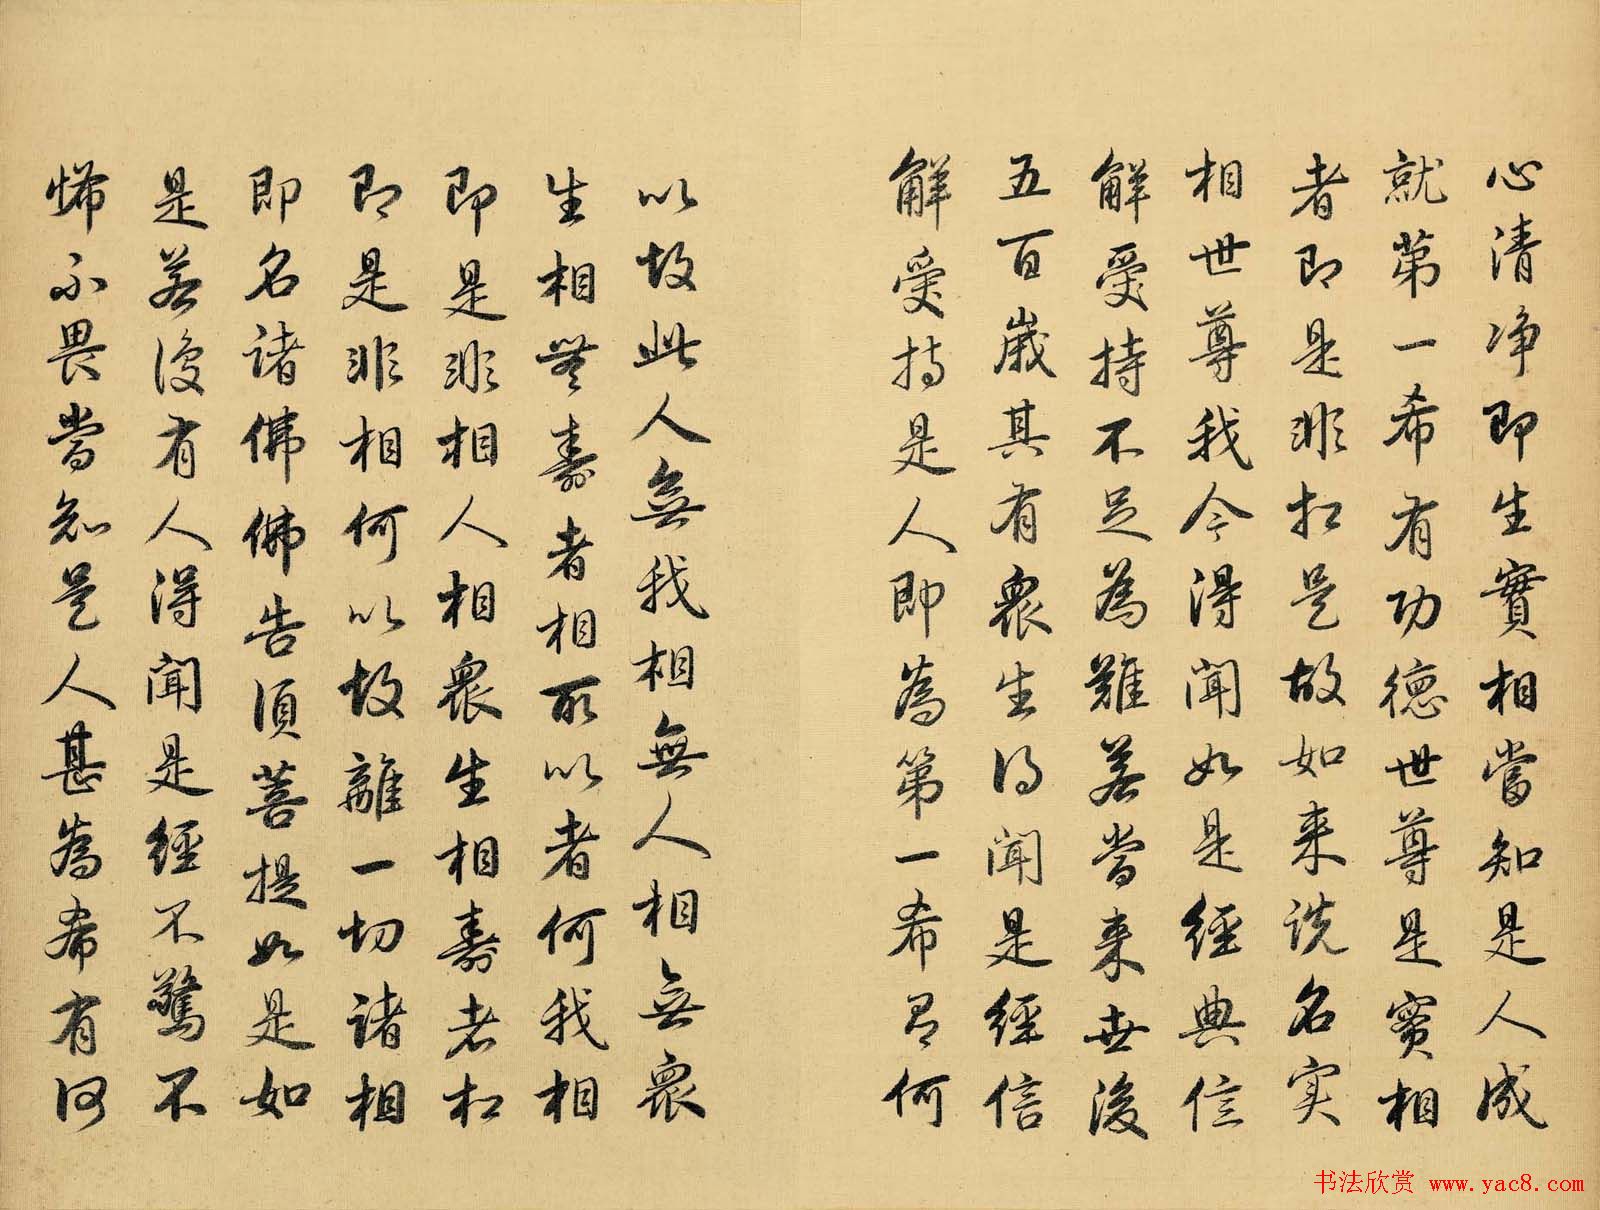 心清净即生實相當知是人成
就第一希有功德世尊是實相
者即是非相是故如来説名实
相世尊我今得聞如是經典信
解受持不足為難若當来世後
五百歲其有衆生得聞是經信
解受持是人即為第一希有何
以故此人無我相無人相無衆
生相無壽者相所以者何我相
即是非相人相衆生相壽者相
即是非相何以故離一切諸相
即名諸佛佛告須菩提如是如
是若復有人得聞是經不驚不
怖不畏當知是人甚為希有何
书法欣赏 www.yac8.com